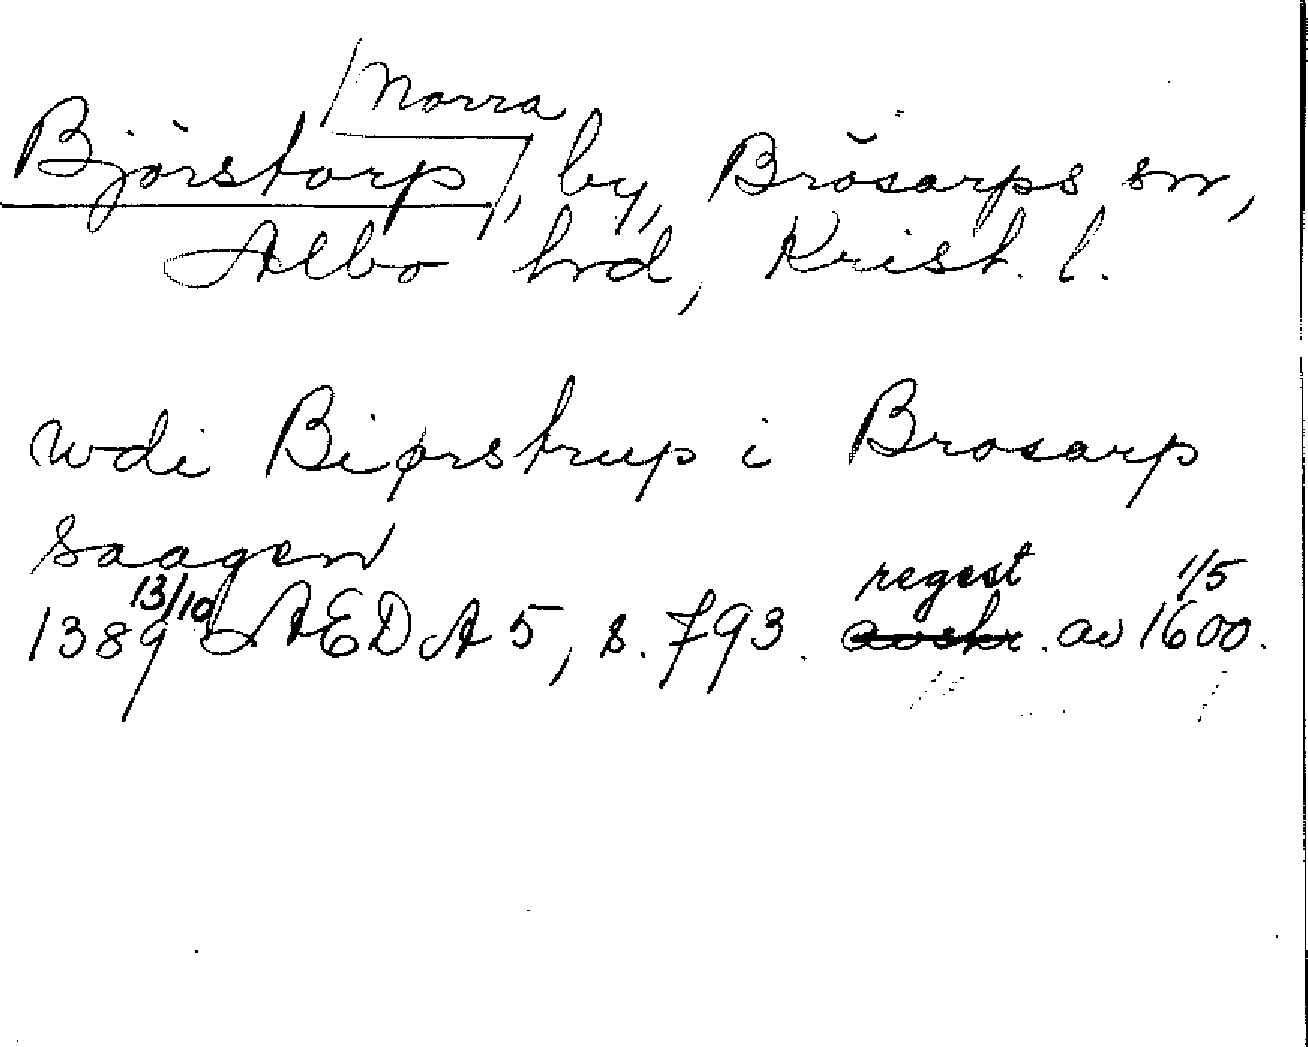 Norra
Björstorp, by, Brösarps sn,
Albo hd, Krist. l.
wdi Biørstrup i Brosarp
saagen
regest 1/5
1389 13/10 ÆDA 5, s. 793. avskr. av 1600.